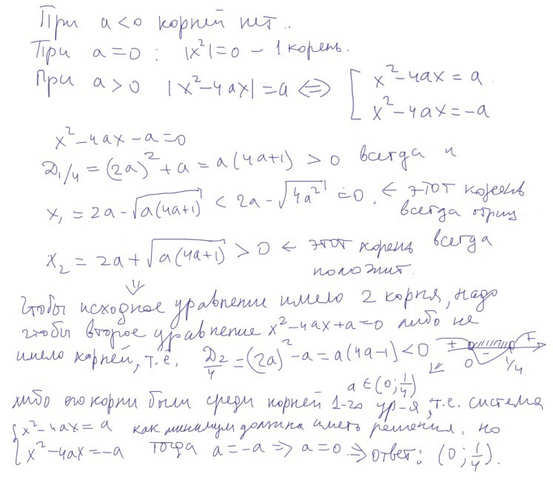 При a<0 корней нет..
При a=0 : |x²|=0 – 1 корень.
При a>0 |x²-4ax|=a ⟺ [ x²-4ax = a
x²-4ax=-a
x²-4ax-a=0
D₁/4 = (2a)²+a = a(4a+1) > 0 всегда и
x₁ = 2a-√a(4a+1) < 2a-√4a² = 0. ← этот корень
всегда отриц
x₂ = 2a+√a(4a+1) > 0 ← этот корень всегда
положит
⇓
Чтобы исходное уравнение имело 2 корня, надо
чтобы второе уравнение x²-4ax+a=0 либо не
имело корней, т.е. D₂/4 = (2a)²-a = a(4a-1) < 0 + 0 - 1/4 +
a ∈ (0; 1/4)
либо его корни были среди корней 1-го ур-я, т.е. система
{ x²-4ax = a как минимум должна иметь решения, но
x²-4ax = -a тогда a=-a ⇒ a=0. ⇒ ответ: (0; 1/4).